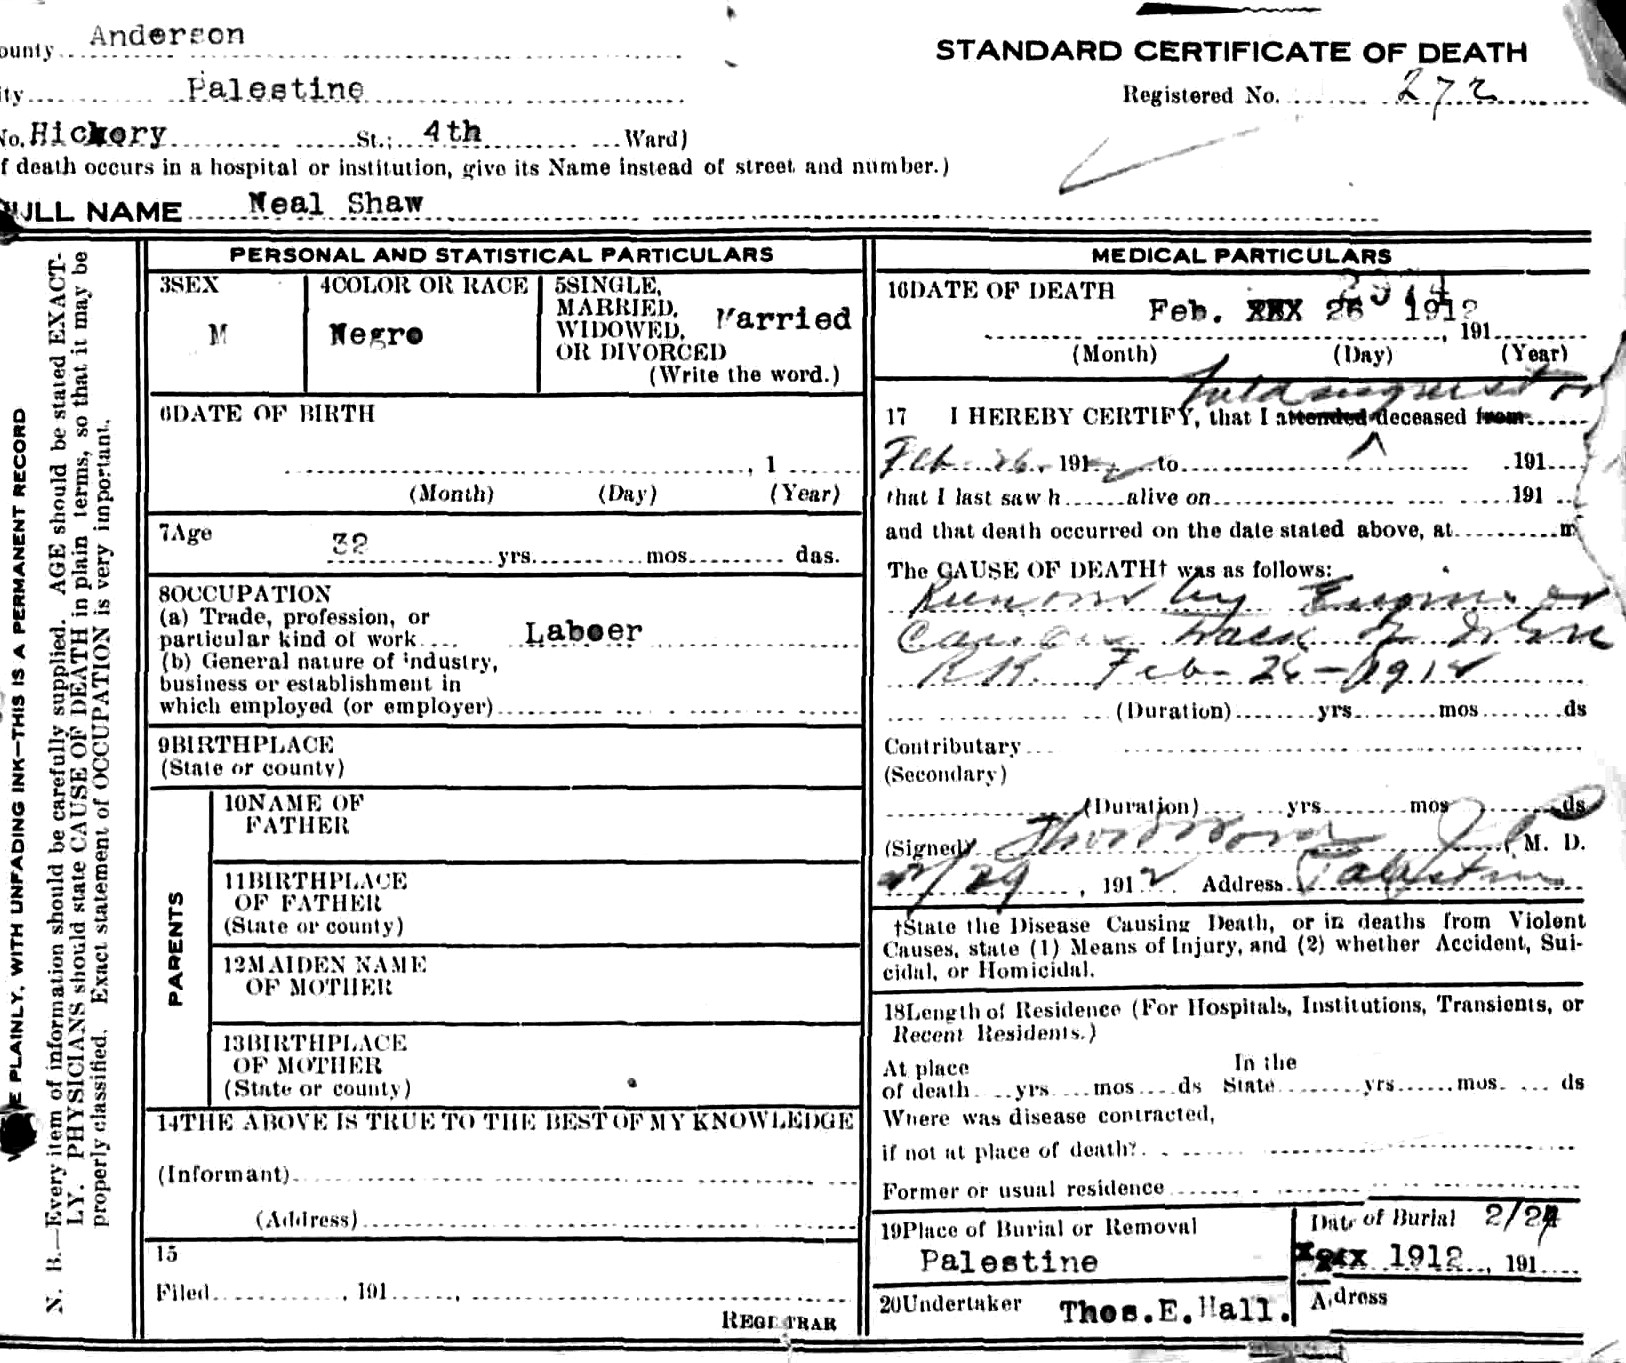 ounty Anderson
STANDARD CERTIFICATE OF DEATH
ity Palestine
Registered No. 272
No. Hickory St.; 4th Ward)
f death occurs in a hospital or institution, give its Name instead of street and number.)
FULL NAME Neal Shaw
E PLAINLY, WITH UNFADING INK—THIS IS A PERMANENT RECORD
N. B.—Every item of information should be carefully supplied. AGE should be stated EXACT-
LY. PHYSICIANS should state CAUSE OF DEATH in plain terms, so that it may be
properly classified. Exact statement of OCCUPATION is very important.
PERSONAL AND STATISTICAL PARTICULARS
3SEX
M
4COLOR OR RACE
Negro
5SINGLE,
MARRIED,
WIDOWED,
OR DIVORCED
(Write the word.)
Married
6DATE OF BIRTH
, 1
(Month) (Day) (Year)
7Age
32 yrs. mos. das.
8OCCUPATION
(a) Trade, profession, or
particular kind of work Laboer
(b) General nature of industry,
business or establishment in
which employed (or employer)
9BIRTHPLACE
(State or county)
PARENTS
10NAME OF
FATHER
11BIRTHPLACE
OF FATHER
(State or county)
12MAIDEN NAME
OF MOTHER
13BIRTHPLACE
OF MOTHER
(State or county)
14THE ABOVE IS TRUE TO THE BEST OF MY KNOWLEDGE
(Informant)
(Address)
15
Filed , 191 ,
REGISTRAR
MEDICAL PARTICULARS
16DATE OF DEATH
Feb. XXX 26 1912
, 191
(Month) (Day) (Year)
held inquest on
17 I HEREBY CERTIFY, that I attended deceased from
Feb 26, 1912 to 191
that I last saw h alive on 191
and that death occurred on the date stated above, at m
The CAUSE OF DEATH† was as follows:
Run over by Engine or
Car on track of
RR. Feb-26-1912
(Duration) yrs mos ds
Contributary
(Secondary)
(Duration) yrs mos ds
(Signed) M. D.
2/29, 1912 Address Palestine
†State the Disease Causing Death, or in deaths from Violent
Causes, state (1) Means of Injury, and (2) whether Accident, Sui-
cidal, or Homicidal.
18Length of Residence (For Hospitals, Institutions, Transients, or
Recent Residents.)
At place In the
of death yrs mos ds State yrs mos. ds
Where was disease contracted,
if not at place of death?
Former or usual residence
19Place of Burial or Removal
Palestine
Date of Burial 2/2
1912, 191
20Undertaker Thos.E.Hall.
Adress